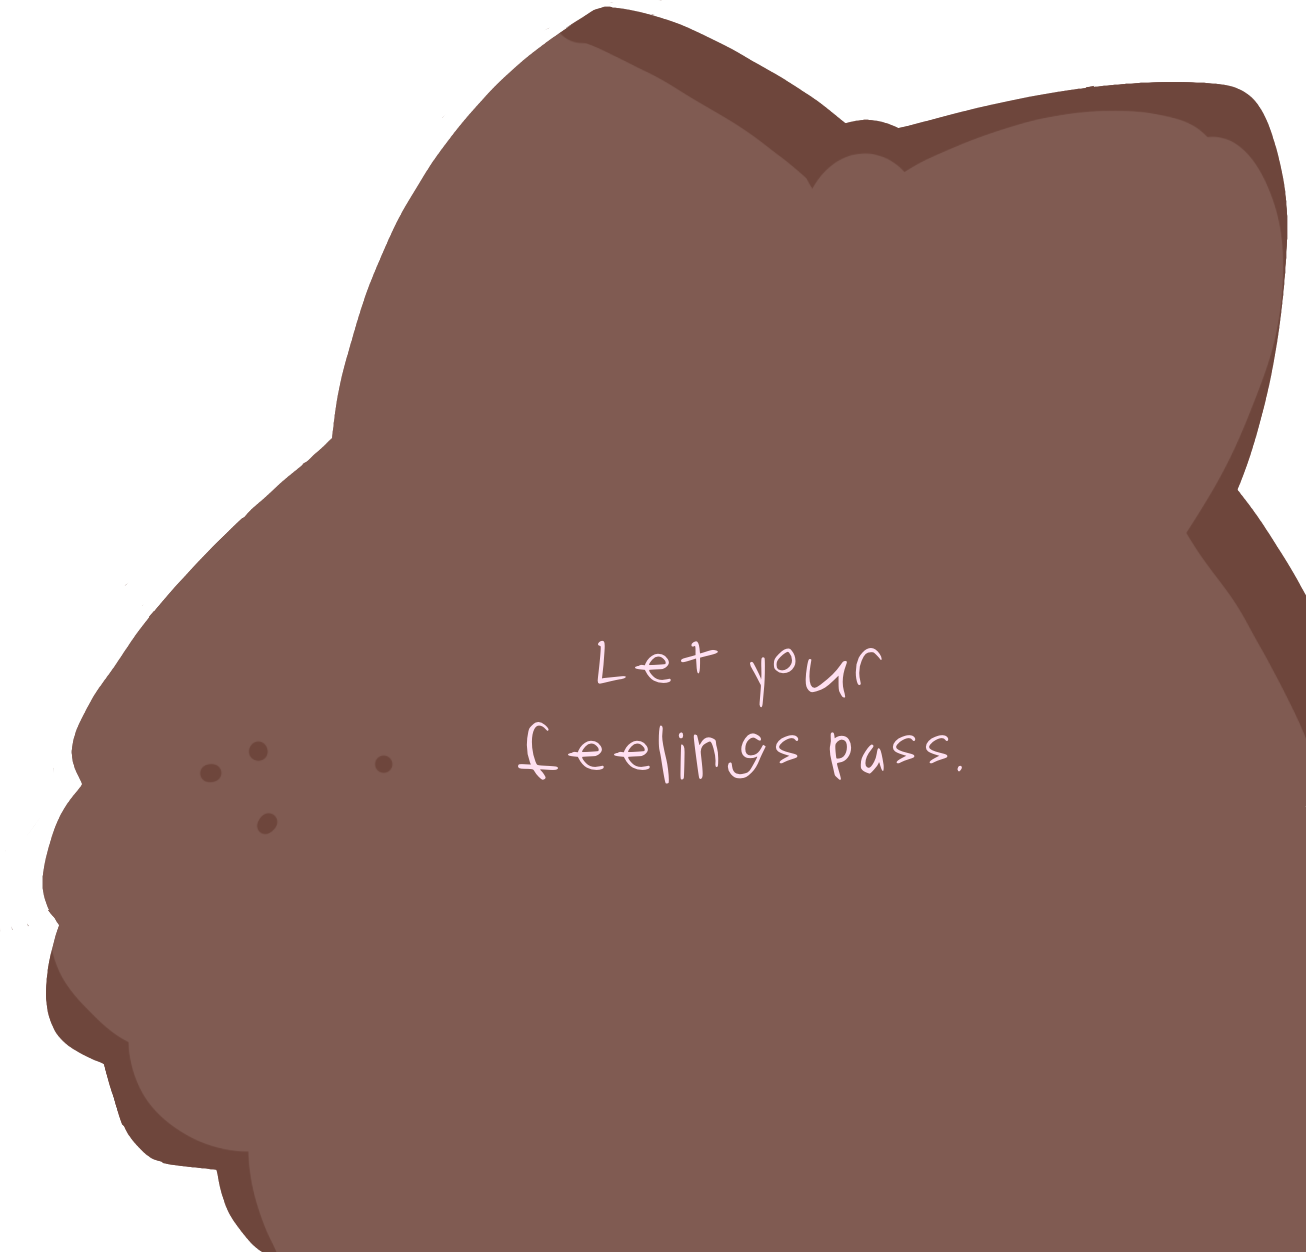 Let your
feelings pass.